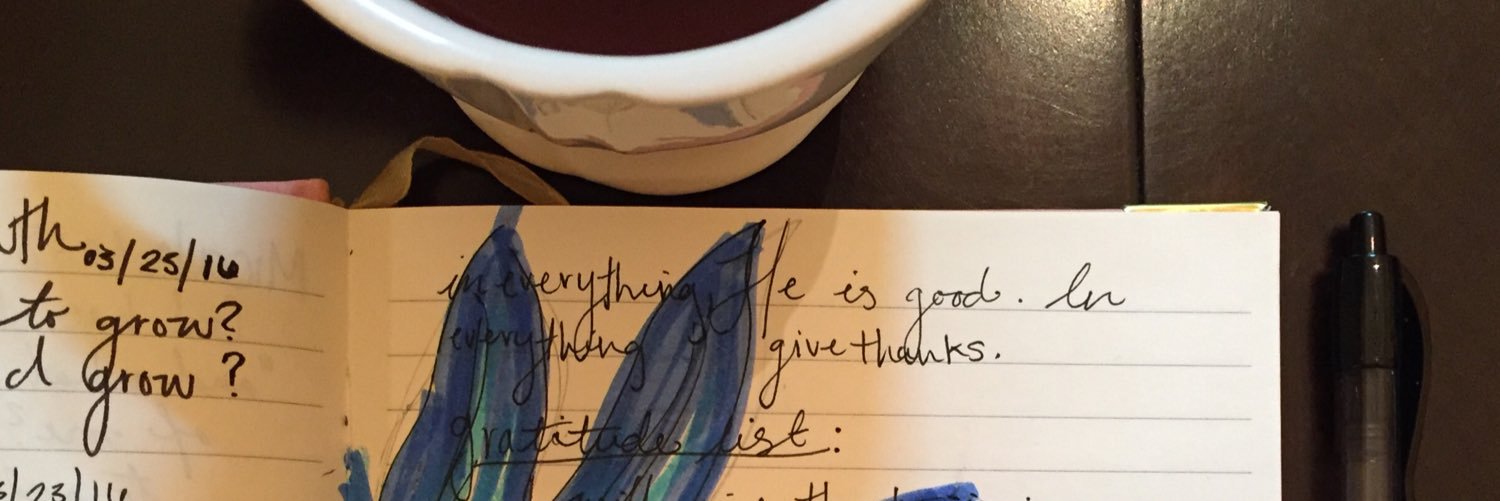 03/25/16
to grow?
d grow?
in everything, He is good. In
everything, give thanks.
gratitude list: